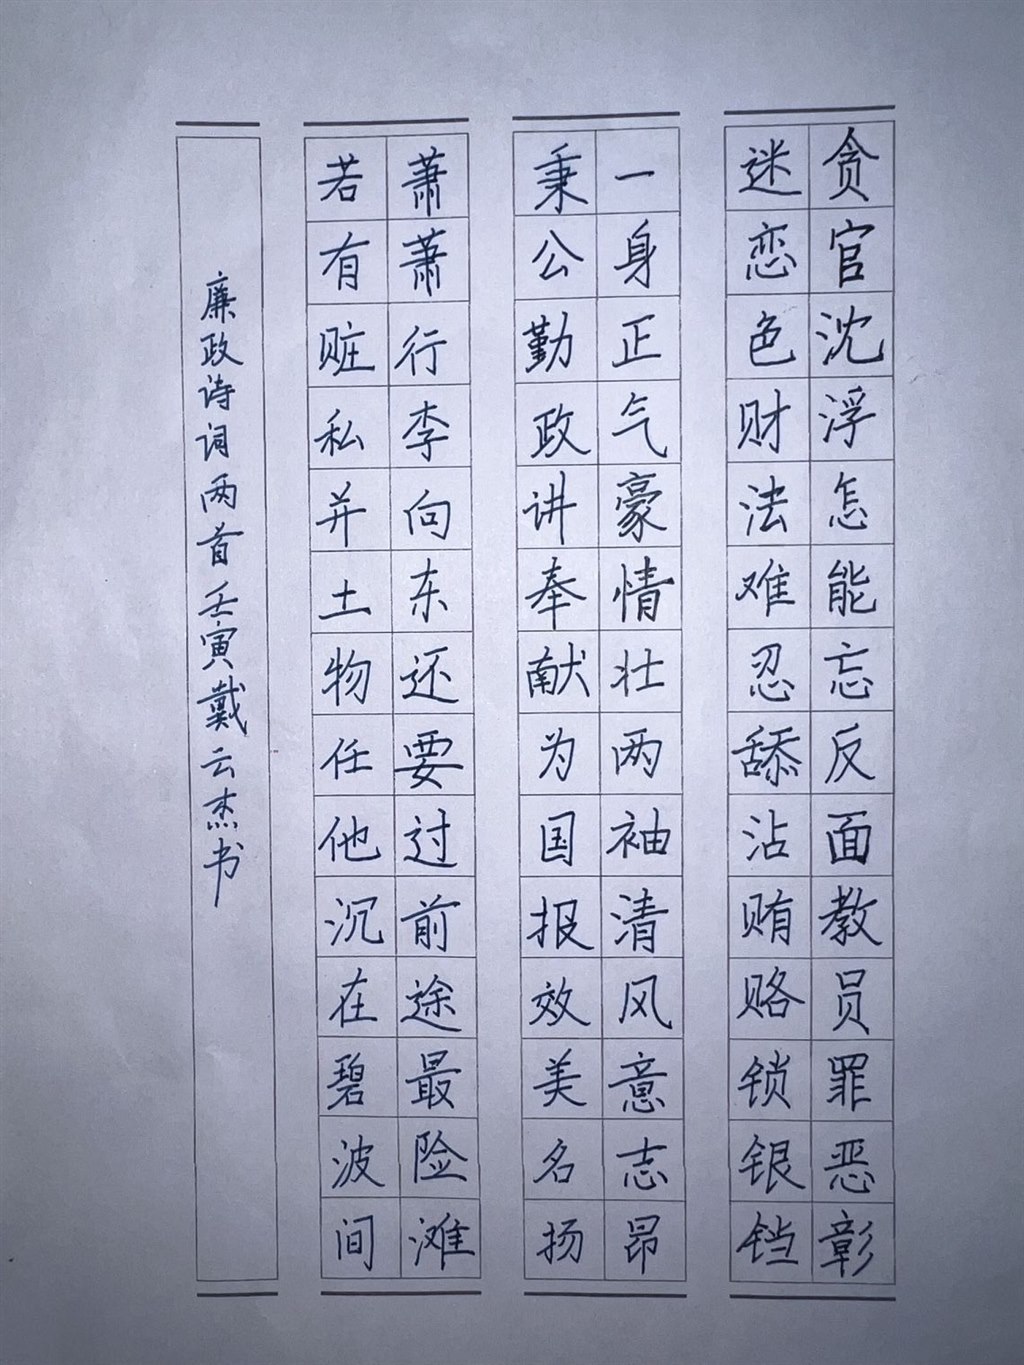 贪官沈浮怎能忘反面教员罪恶彰
迷恋色财法难忍舔沾贿赂锁银铛
一身正气豪情壮两袖清风意志昂
秉公勤政讲奉献为国报效美名扬
萧萧行李向东还要过前途最险滩
若有赃私并土物任他沉在碧波间
廉政诗词两首壬寅戴云杰书